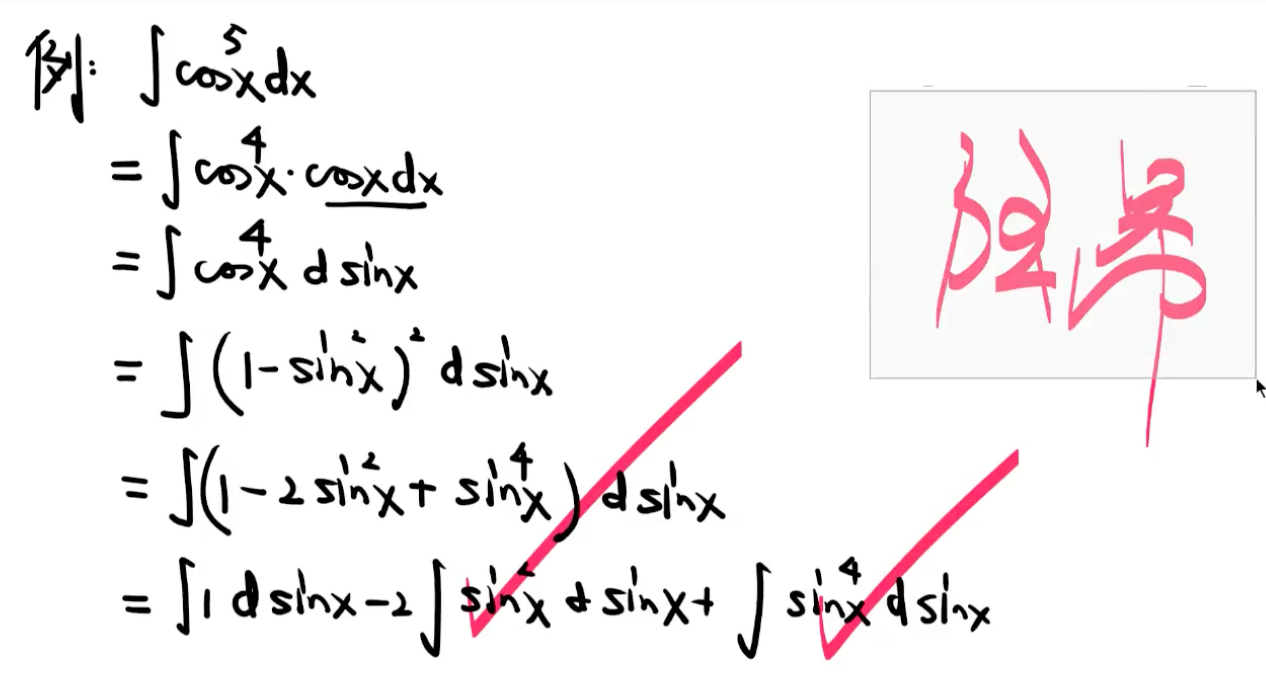 例: ∫cos⁵x dx
= ∫cos⁴x·cosx dx
= ∫cos⁴x d sinx
= ∫(1-sin²x)² d sinx
= ∫(1-2sin²x+sin⁴x) d sinx
= ∫1 d sinx-2∫sin²x d sinx+∫sin⁴x d sinx